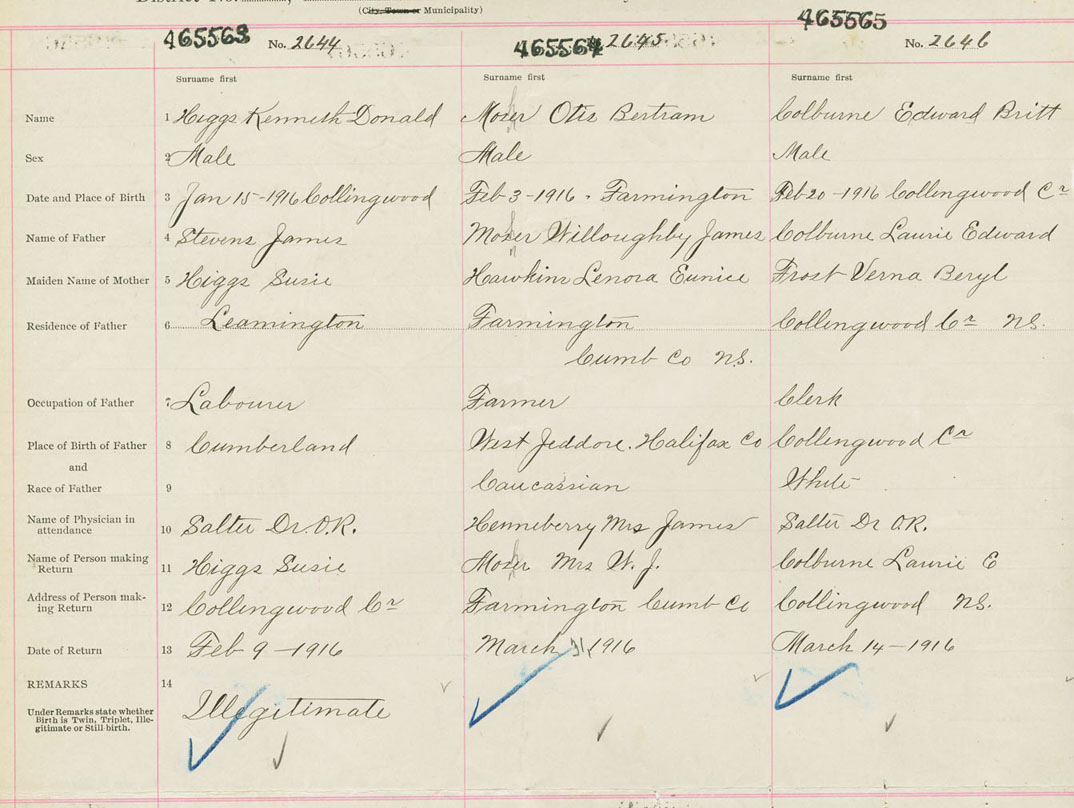 (City, Town or Municipality)
465563 No. 2644
465564 2645
465565 No. 2646
Surname first Surname first Surname first
Name 1 Higgs Kenneth Donald Moser Otis Bertram Colburne Edward Britt
Sex 2 Male Male Male
Date and Place of Birth 3 Jan 15-1916 Collingwood Feb-3-1916 - Farmington Feb 20-1916 Collingwood Cr
Name of Father 4 Stevens James Moser Willoughby James Colburne Laurie Edward
Maiden Name of Mother 5 Higgs Susie Hawkins Lenora Eunice Frost Verna Beryl
Residence of Father 6 Leamington Farmington Collingwood Cr N.S.
Cumb Co N.S.
Occupation of Father 7 Labourer Farmer Clerk
Place of Birth of Father 8 Cumberland West Jeddore. Halifax Co Collingwood Cr
and
Race of Father 9 Caucassian White
Name of Physician in
attendance 10 Salter Dr. O.R. Henneberry Mrs James Salter Dr O.R.
Name of Person making
Return 11 Higgs Susie Moser Mrs W. J. Colburne Laurie E
Address of Person mak-
ing Return 12 Collingwood Cr Farmington Cumb Co Collingwood N.S.
Date of Return 13 Feb 9-1916 March 31, 1916 March 14-1916
REMARKS 14
Under Remarks state whether
Birth is Twin, Triplet, Ille-
gitimate or Still-birth.
Illegitimate